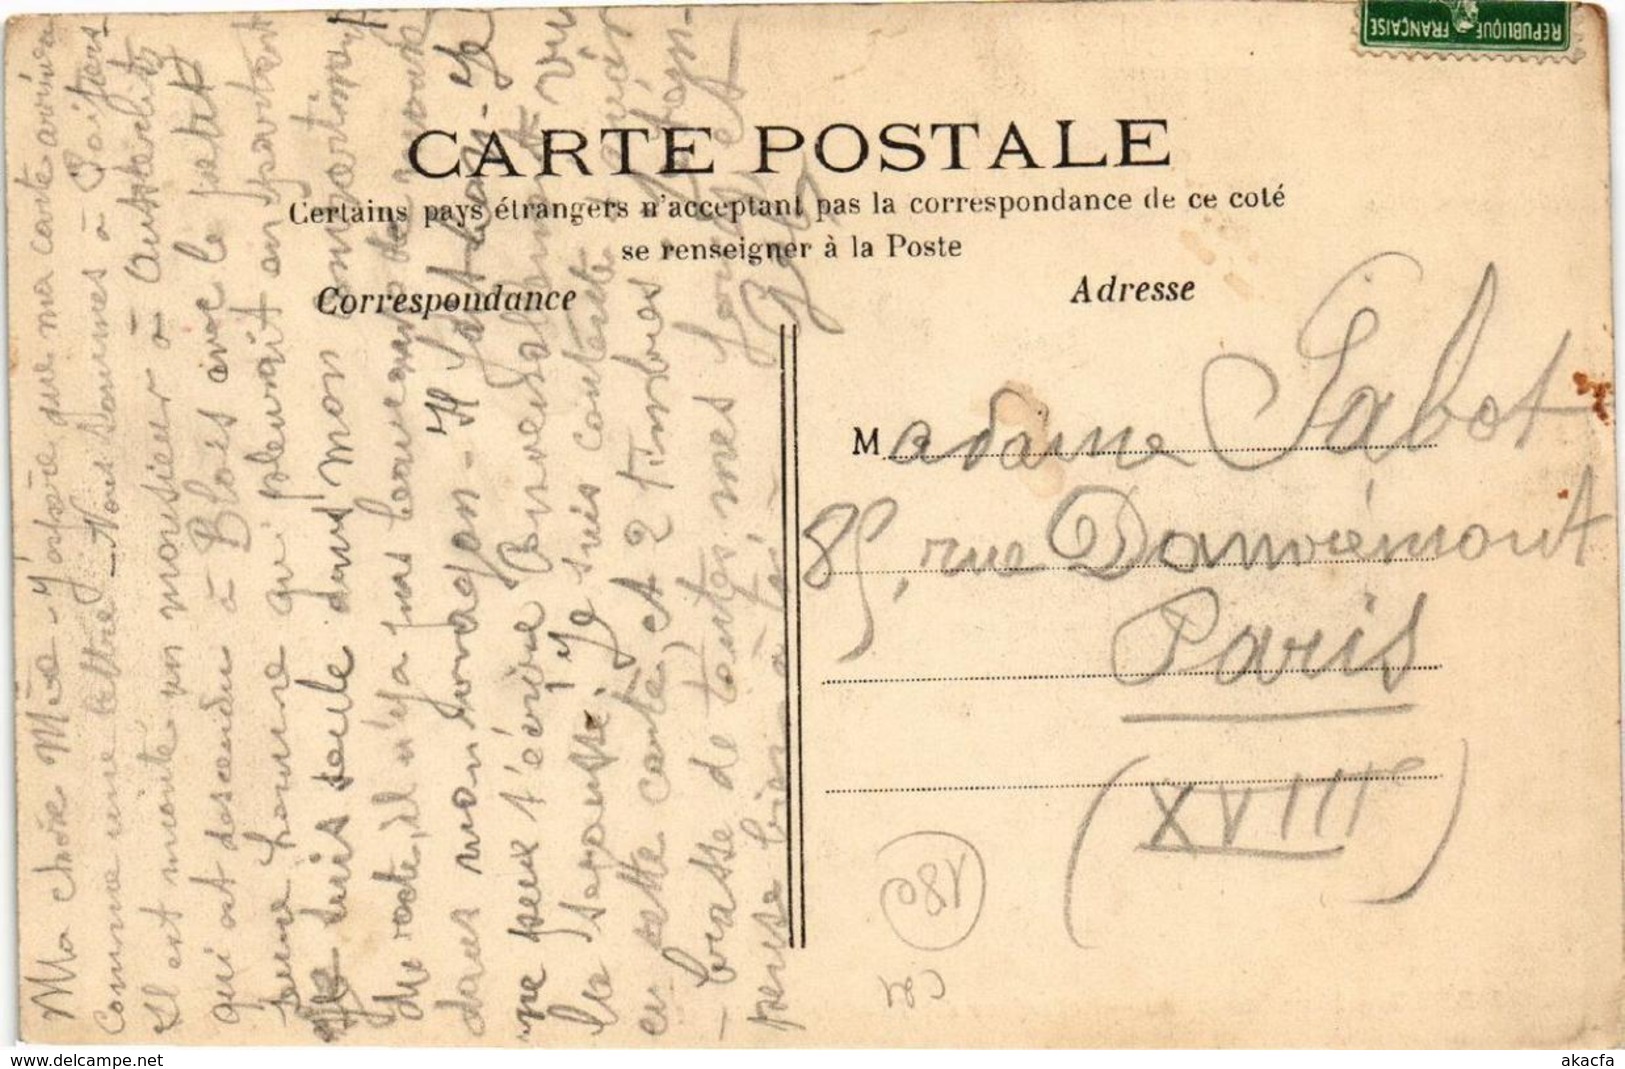 REPUBLIQUE FRANÇAISE
CARTE POSTALE
Certains pays étrangers n'acceptant pas la correspondance de ce coté
se renseigner à la Poste
Correspondance
Adresse
Madame Jabot
85, rue Damrémont
Paris
(XVIIIe)
Ma chère Mère - J'espère que ma carte arrivera
comme une lettre - Nous sommes à Poitiers
Il est monté un monsieur à Austerlitz
qui est descendu à Blois avec le petit
jeune homme qui pleurait en partant
Je suis seule dans mon compartiment
du reste, il n'y a pas beaucoup de monde
dans mon wagon - Il fait bon - Je
ne peux t'écrire convenablement vu
les secousses. Je suis contente d'avoir
eu cette carte et 2 timbres
- brasse de toutes mes forces et
pense bien à toi -